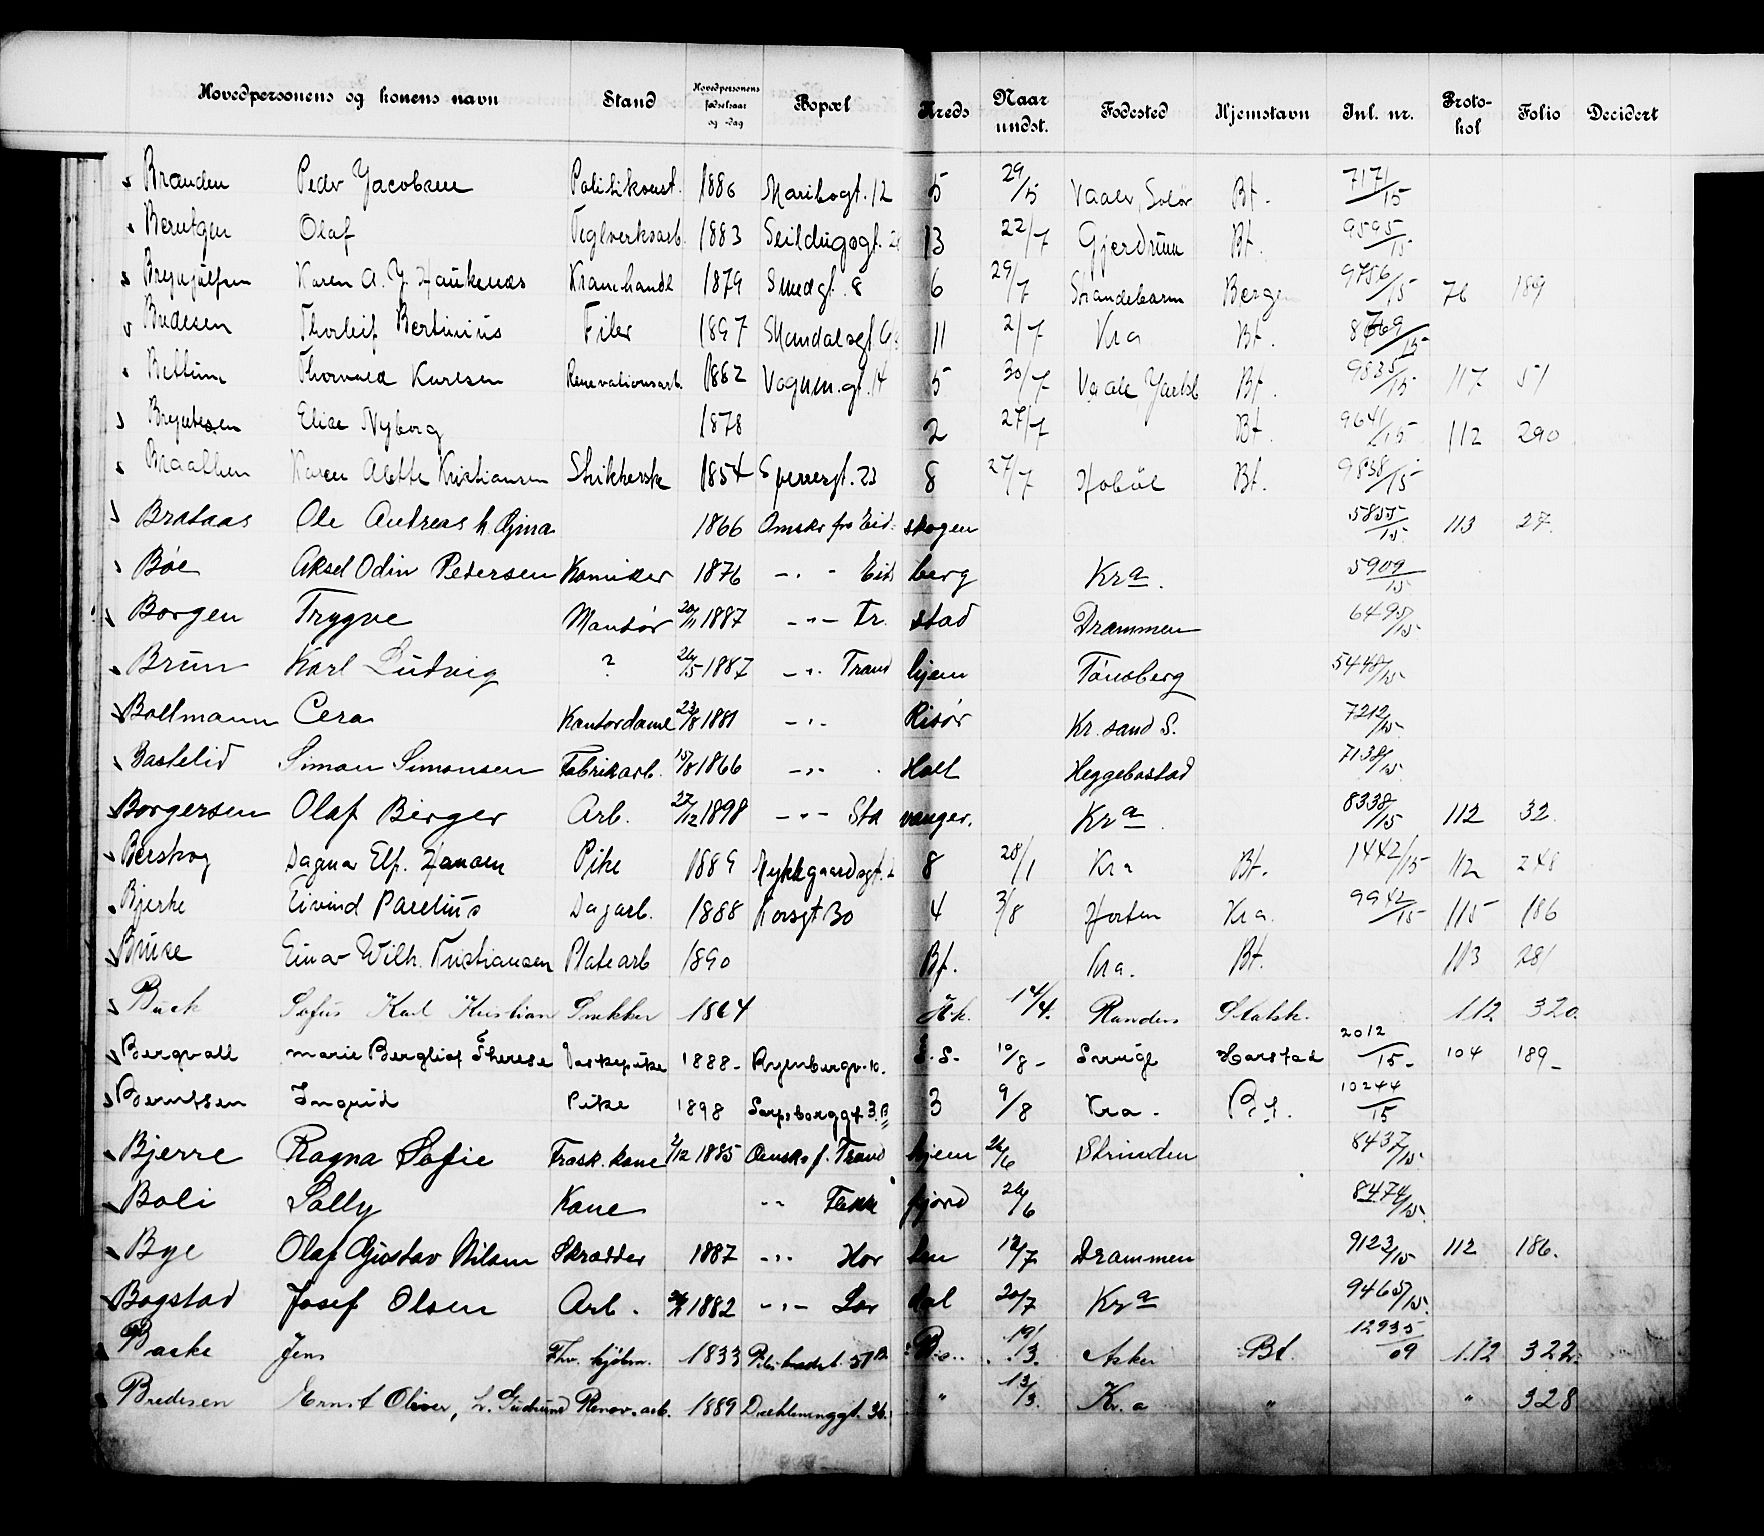 Hovedpersonens og konens navn Stand Hovedpersonens fødselsaar og -dag Bopæl Kreds Naar undst. Fødested Hjemstavn Inl. nr. Protokol Folio Decidert
Branden Peder Jacobsen Politikonst. 1886 Maribogt. 12 5 29/5 Vaaler, Solør Bt. 7171/15
Berntzen Olaf Teglverksarb. 1883 Seildugsgt. 13 22/7 Gjerdrum Bt. 9595/15
Brynjulfsen Karen A. J. Haukenes Kramhandl 1879 Smedgt. 8 6 29/7 Strandebarm Bergen 9756/15 76 189
Thorleif Bertinius Filer 1897 Mandalsgt. 11 2/7 Kra Bt. /15
Bettum Thorvald Karlsen Renovationsarb. 1882 Vognm.gt. 14 5 30/7 Vaale Jarlsb Bt. 9835/15 117 51
Bryntesen Elise Nyborg 1878 2 27/7 Bt. 9641/15 112 290
Braathen Karen Alette Kristiansen Strikkerske 1854 Sperregt. 23 8 27/7 Hobøl Bt. 9838/15
Brataas Ole Andreas h. Gjina 1866 Ømsks fra Eidskogen 5855/15 113 27.
Bøe Aksel Odin Pedersen Komiker 1876 -"- Eidsberg Kra. 5909/15
Borgen Trygve Montør 1887 -"- Trøstad Drammen 6495/15
Brun Karl Ludvig ? 26/5 1887 -"- Trondhjem Tønsberg 5448/15
Bollmann Cera Kontordame 23/8 1881 -"- Risør Kr.sand S. 7212/15
Bastelid Simon Simonsen Fabrikarb. 15/8 1866 -"- Holt Heggebostad 7138/15
Borgersen Olaf Birger Arb. 27/12 1898 -"- Stavanger. Kra. 8338/15 112 32.
Berskog Dagmar Elf. Hansen Pike 1889 Nykkgaardsgt. 8 28/1 Kra Bt. 1442/15 112 248
Bjerke Eivind Parelius Dagarb. 1888 Korsgt 30 4 3/8 Horten Kra. 9942/15 115 186
Bruse Einar Wilh. Kristiansen Platearb 1890 Bf. Kra. Bt. 113 281
Buck Sofus Karl Kristian Snekker 1864 H.k. 14/4. Randers Statsk. 112 320.
Bergvall Marie Bergliot Therese Vaskepike 1888- Ryenbergv. 10. S.S. 10/8- Sverige Harstad 2012/15- 104 189-
Berntsen Ingrid Pike 1898 Sarpsborggt 3.B 3 9/8 Kra- Bt. 10244/15
Bjerre Ragna Sofie Frask. kone 2/12 1885 Ømsks f. Trondhjem 26/6 Strinden 8437/15
Boli Solly Kone -"- fjord 26/6 8474/15.
Bye Olaf Gustav Nilsen Skrædder 1887 -"- Horten 12/7 Drammen 9123/15 112 186.
Bogstad Josef Olsen Arb. 1882 -"- Lørdal 20/7 Kra 9465/15.
Baske Jens Fhv. kjøbm. 1833 Pilestrædet. 57 B. 19/3. Asker Bt. 12935/09 112 322.
Bredesen Ernst Oliver, h. Gudrund Renov.arb. 1889 Drektemeggt. 36. " 13/3. Kr.a " " 328